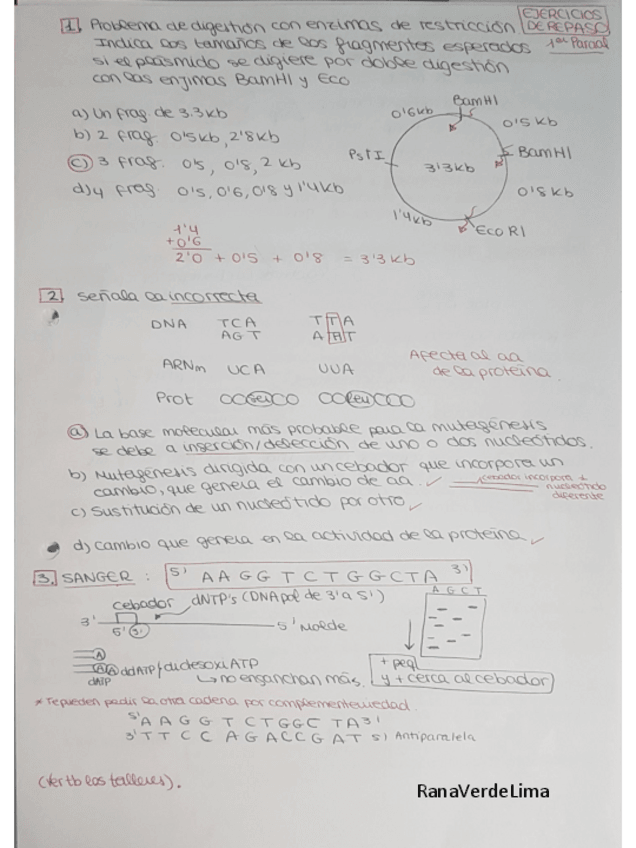 EJERCICIOS
DE REPASO
1er Parcial
1. Problema de digestión con enzimas de restricción
Indica los tamaños de los fragmentos esperados
si el plásmido se digiere por doble digestión
con las enzimas BamHI y Eco
a) Un frag. de 3.3kb
b) 2 frag. 0'5kb, 2'8kb
c) 3 frag. 0'5, 0'8, 2kb
d) 4 frag. 0'5, 0'6, 0'8 y 1'4kb
BamHI
0'6kb
0'5kb
PstI
3'3kb
BamHI
0'8kb
1'4kb
EcoRI
1'4
+0'6
2'0 + 0'5 + 0'8 = 3'3kb
2. Señala la incorrecta
DNA TCA TTA
AGT AAT
ARNm UCA UUA
Prot ser leu
Afecta al aa
de la proteína.
a) La base molecular más probable para la mutagénesis
se debe a inserción/delección de uno o dos nucleótidos.
b) Mutagénesis dirigida con un cebador que incorpora un
cambio, que genera el cambio de aa. ✓
cebador incorpora
nucleótido
diferente
c) Sustitución de un nucleótido por otro ✓
d) Cambio que genera en la actividad de la proteína ✓
3. SANGER: 5' AAGGTCTGGCTA 3'
A G C T
cebador dNTP's (DNApol de 3' a 5')
3' 5' Molde
5' 3'
A
A A ddATP/didesoxiATP
dATP ↳ no enganchan más.
+ peq
y + cerca al cebador
* Te pueden pedir la otra cadena por complementariedad.
5' A A G G T C T G G C T A 3'
3' T T C C A G A C C G A T 5' Antiparalela
(Ver tb los talleres).
RanaVerdeLima